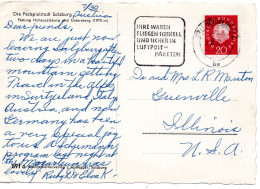 Die Festspielstadt Salzburg
Festung Hohensalzburg und Untersberg (1973 m)
Austria
Dear friends,
We are just now
leaving Salzburg after
two days in a beautiful
mountain setting.
Travel in the Alps
in Switzerland, Italy,
Austria, and now
Germany has been
a very special joy
tour. A
program last night at
the
lovely!
IHRE WAREN
FLIEGEN SCHNELL
UND SICHER IN
LUFTPOST-
PAKETEN
20
Dr and Mrs L. R.
Greenville
Illinois
U.S.A.